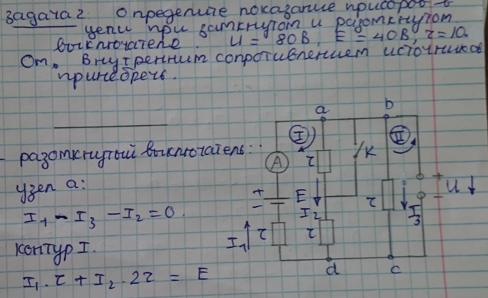 задача 2. Определите показание приборов в
цепи при замкнутом и разомкнутом
выключателе. U = 80В, E = 40В, r = 10
Ом. Внутренним сопротивлением источников
пренебречь.
- разомкнутый выключатель:
узел a:
I₁ - I₃ - I₂ = 0.
контур I.
I₁·r + I₂·2r = E
a
b
I
II
A
r
K
+
−
E
I₂
r
+
−
U
I₁
r
r
I₃
d
c